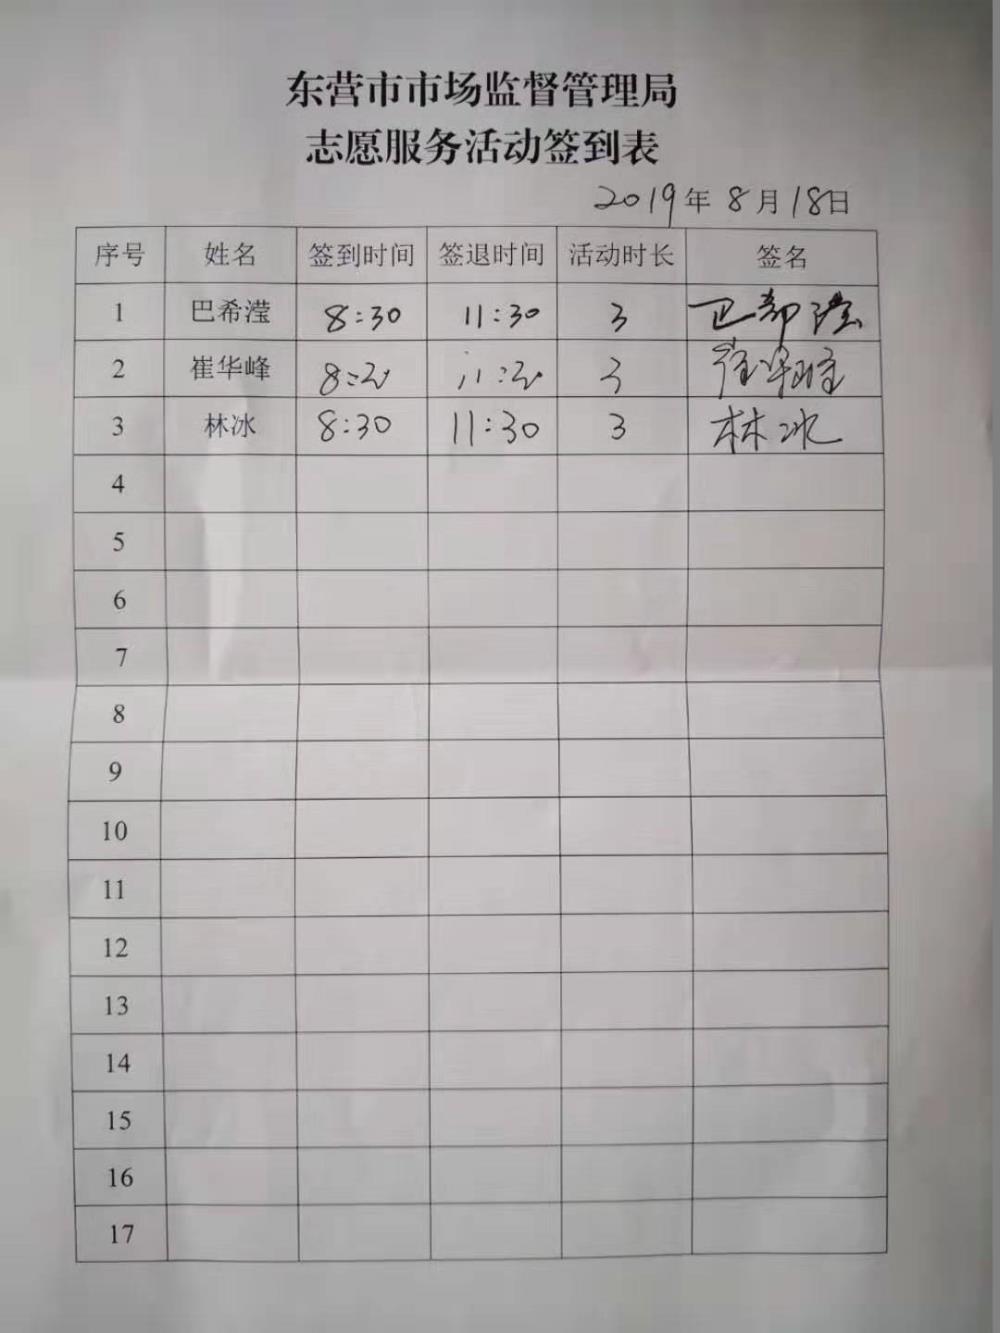 东营市市场监督管理局
志愿服务活动签到表
2019年8月18日
序号 姓名 签到时间 签退时间 活动时长 签名
1 巴希滢 8:30 11:30 3 巴希滢
2 崔华峰 8:30 11:30 3 崔华峰
3 林冰 8:30 11:30 3 林冰
4
5
6
7
8
9
10
11
12
13
14
15
16
17